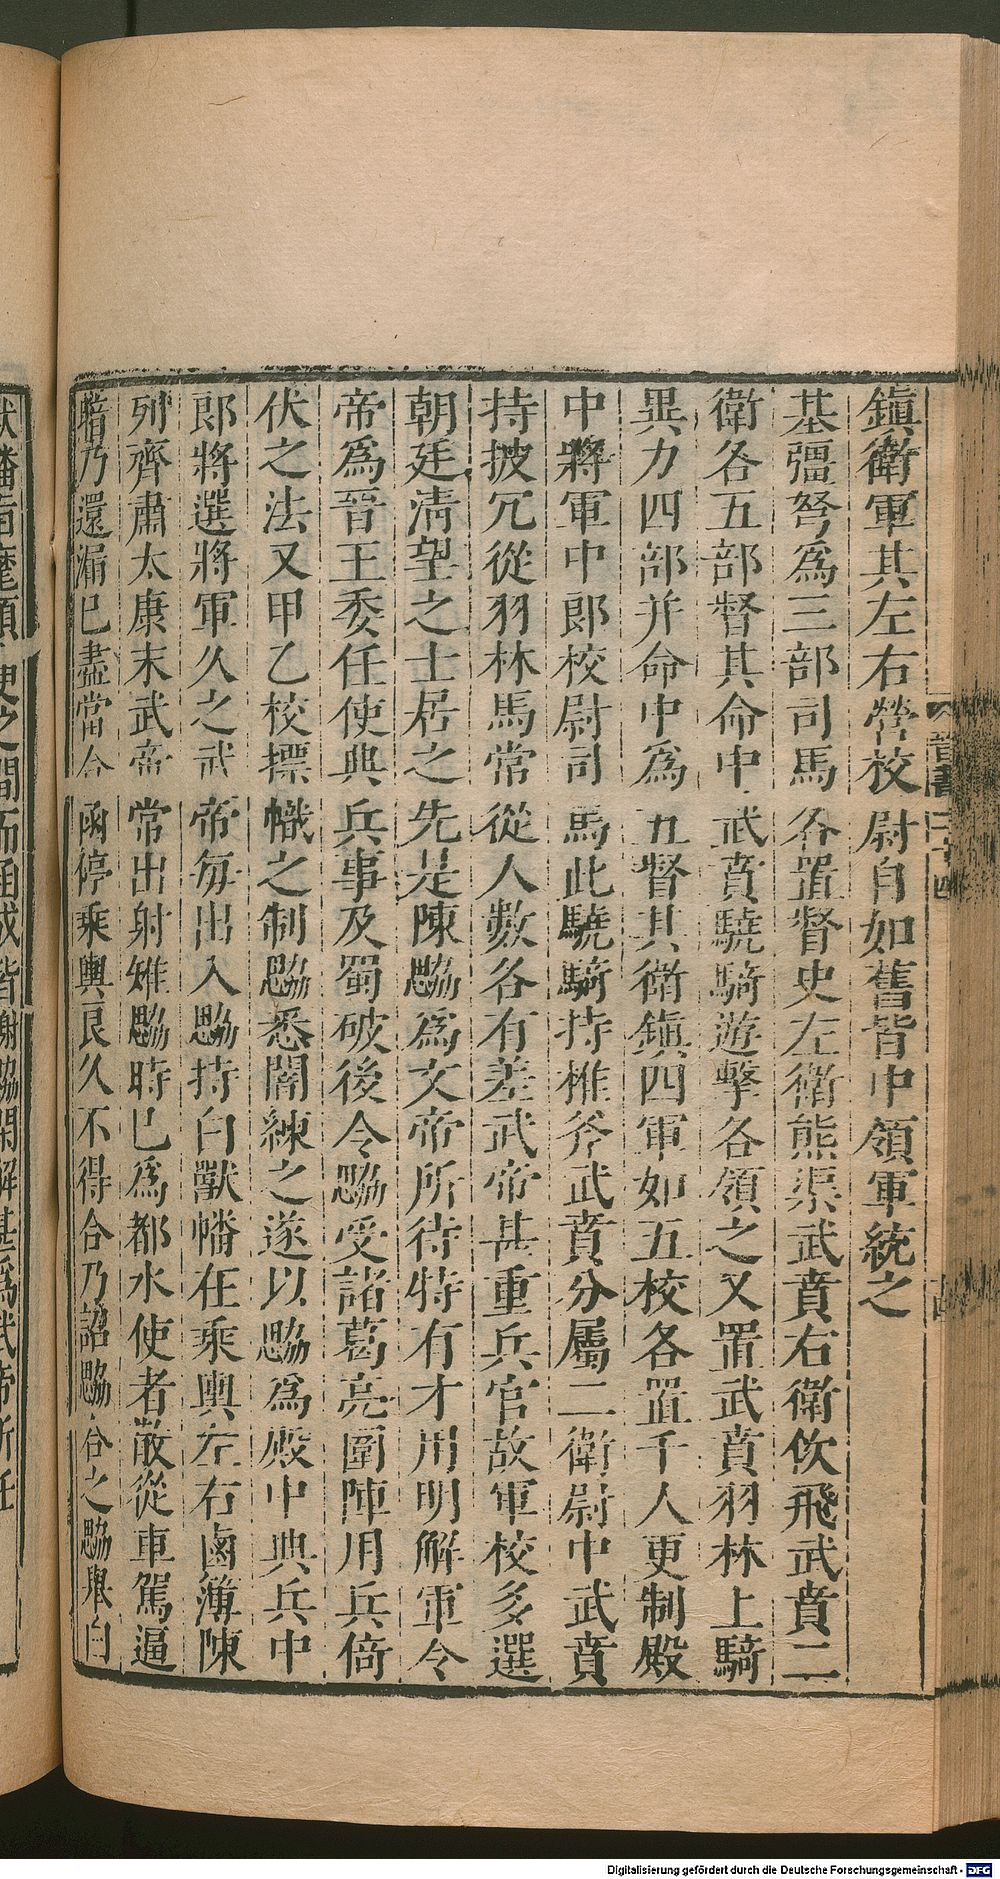 鎮衛軍其左右營校尉自如舊皆中領軍統之
基彊弩爲三部司馬各置督史左衛熊渠武賁右衛佽飛武賁二
衛各五部督其命中武賁驍騎遊擊各領之又置武賁羽林上騎
異力四部并命中爲五督其衛鎮四軍如五校各置千人更制殿
中將軍中郎校尉司馬此驍騎持椎斧武賁分屬二衛尉中武賁
持披冗從羽林馬常從人數各有差武帝甚重兵官故軍校多選
朝廷淸望之士居之先是陳勰爲文帝所待特有才用明解軍令
帝爲晉王委任使典兵事及蜀破後令勰受諸葛亮圍陣用兵倚
伏之法又甲乙校標幟之制勰悉闇練之遂以勰爲殿中典兵中
郎將選將軍久之武帝每出入勰持白獸幡在乘輿左右鹵簿陳
列齊肅太康末武帝常出射雉勰時已爲都水使者散從車駕逼
暗乃還漏已盡當合函停乘輿良久不得合乃詔勰合之勰舉白
晉書二十四
Digitalisierung gefördert durch die Deutsche Forschungsgemeinschaft - DFG